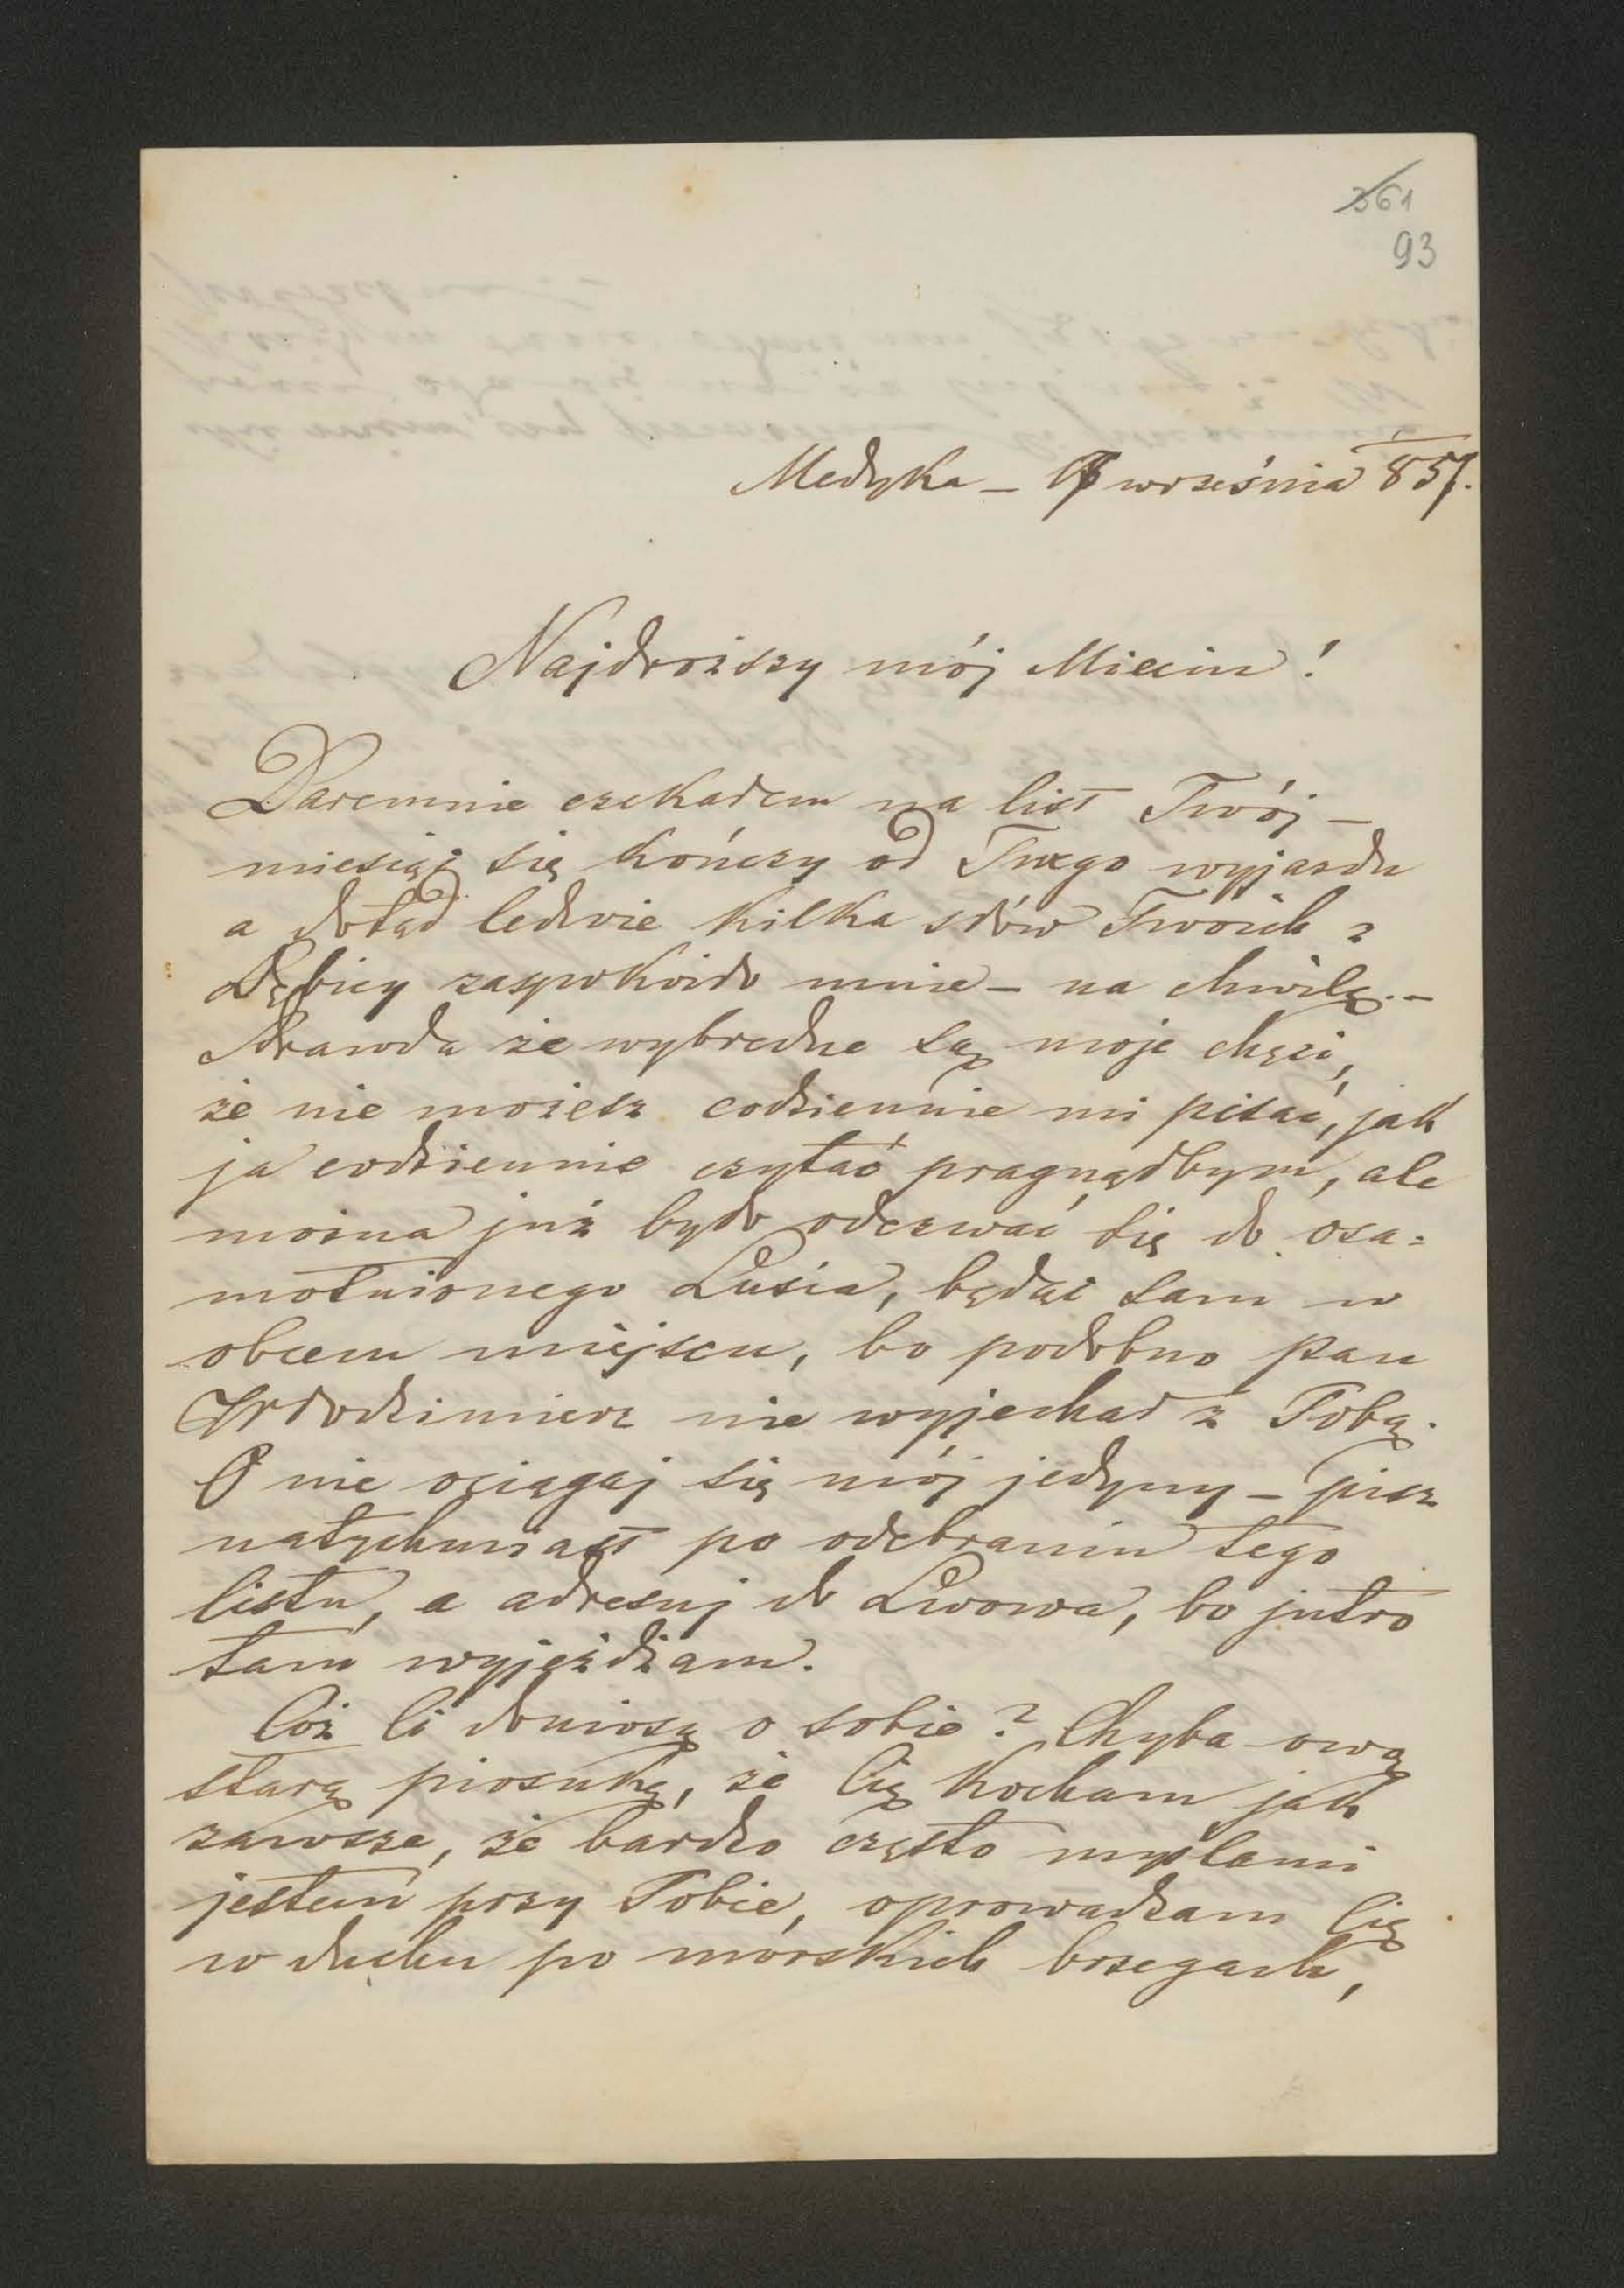 361
93
Medyka – września 857.
Najdroższy mój Mieciu!
Daremnie czekałem na list Twój –
miesiąc się kończy od Twego wyjazdu
a dotąd ledwie kilka słów Twoich z
Dębicy zaspokoiło mnie – na chwilę. –
Prawda że wybredne są moje chęci,
że nie możesz codziennie mi pisać, jak
ja codziennie czytać pragnąłbym, ale
można już było odezwać się do osa=
motnionego Lusia, będąc sam w
obcem miejscu, bo podobno pan
Włodzimierz nie wyjechał z Tobą.
O nie ociągaj się mój jedyny – pisz
natychmiast po odebraniu tego
listu, a adresuj do Lwowa, bo jutro
tam wyjeżdżam.
Cóż Ci doniosę o sobie? Chyba ową
starą piosnkę, że Cię kocham jak
zawsze, że bardzo często myslami
jestem przy Tobie, oprowadzam Cię
w duchu po morskich brzegach,